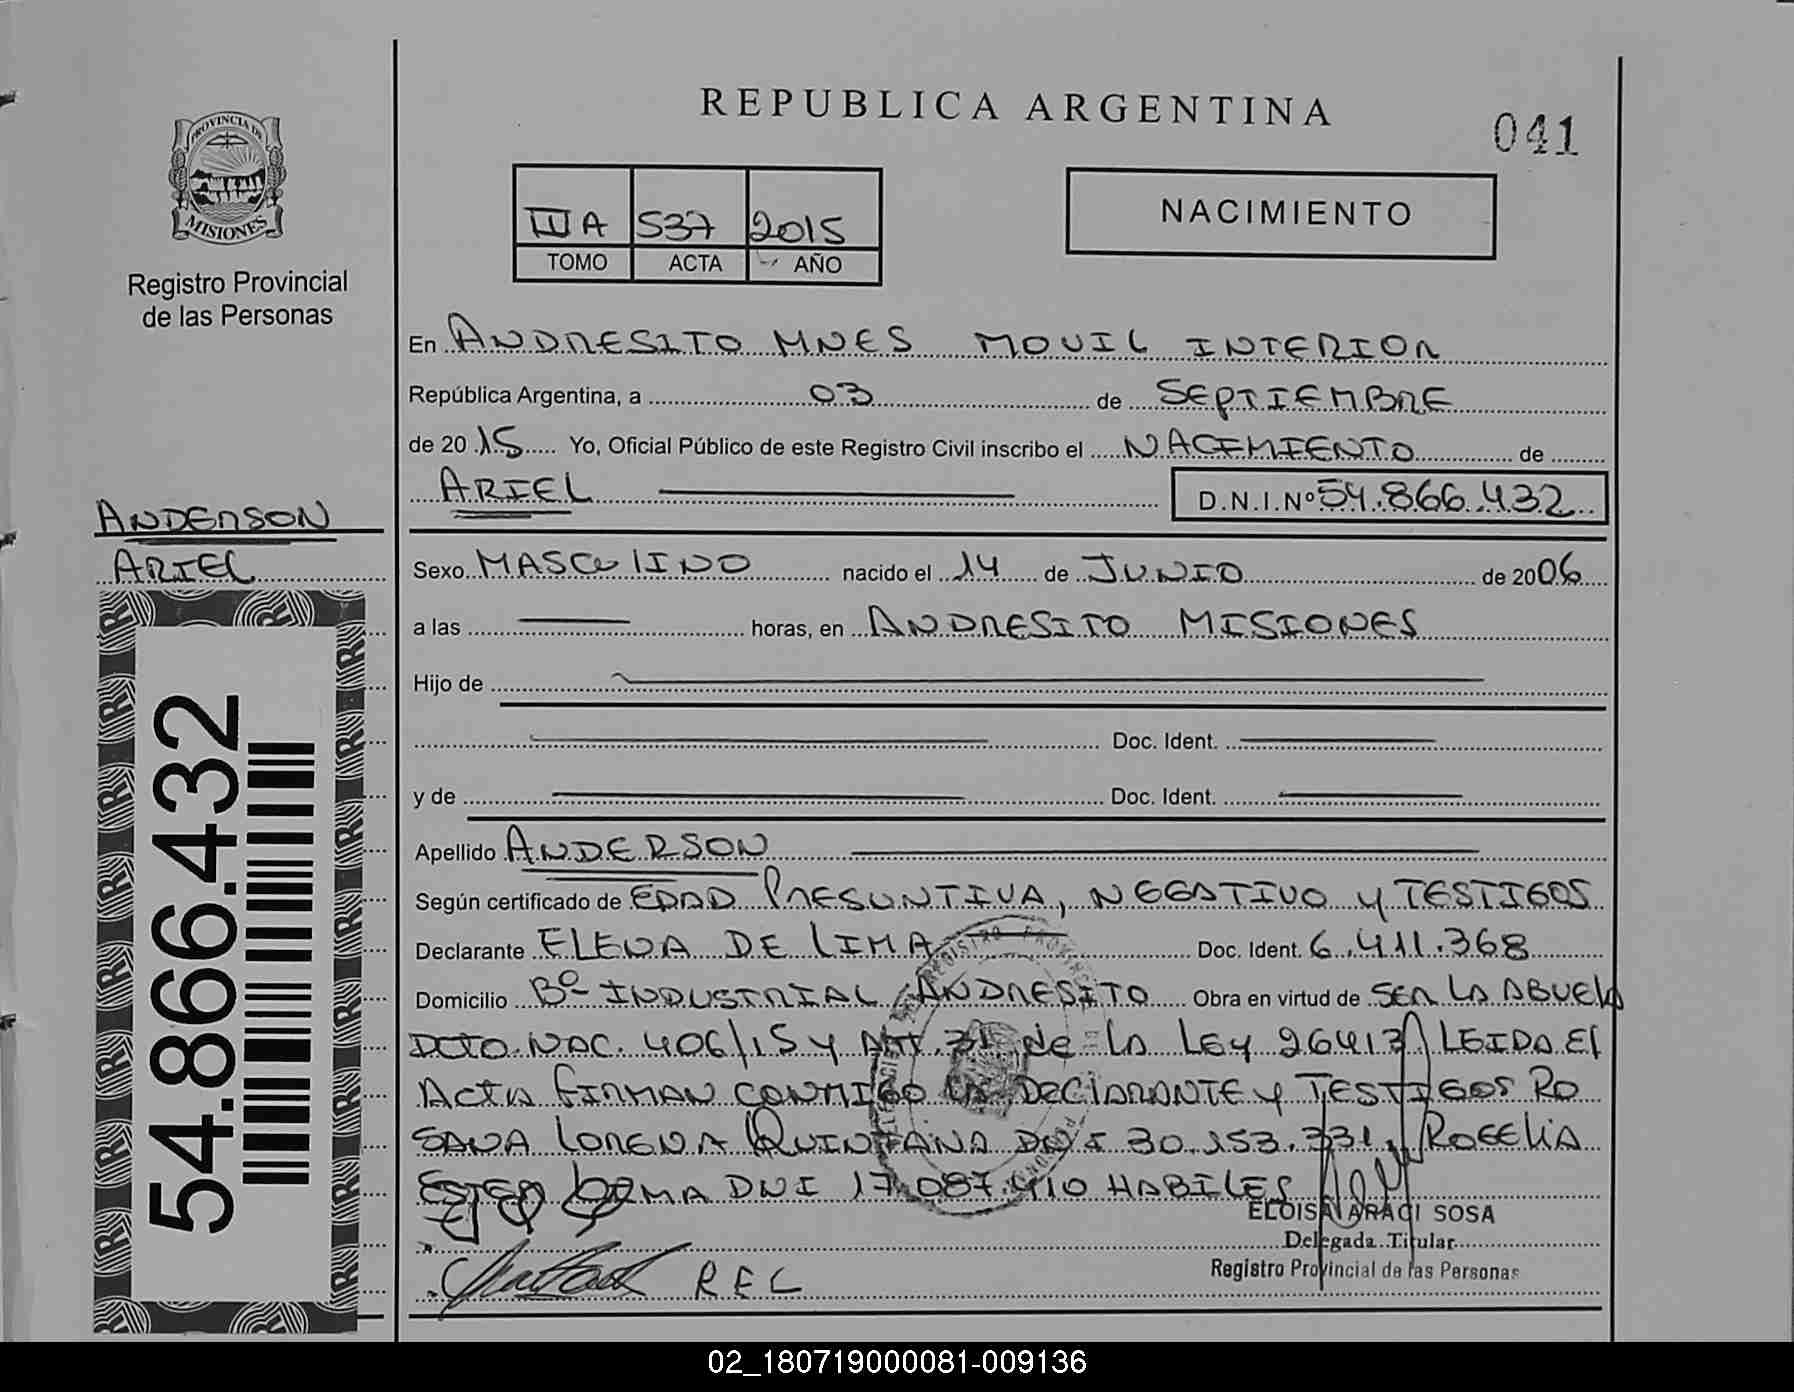 REPUBLICA ARGENTINA
041
PROVINCIA DE
MISIONES
Registro Provincial
de las Personas
III A 537 2015
TOMO ACTA AÑO
NACIMIENTO
En ANDRESITO MNES MOVIL INTERIOR
República Argentina, a 03 de SEPTIEMBRE
de 2015 Yo, Oficial Público de este Registro Civil inscribo el NACIMIENTO de
ARIEL D.N.I.Nº 54.866.432
ANDERSON
ARIEL
54.866.432
Sexo MASCULINO nacido el 14 de JUNIO de 2006
a las horas, en ANDRESITO MISIONES
Hijo de
Doc. Ident.
y de Doc. Ident.
Apellido ANDERSON
Según certificado de EDAD PRESUNTIVA, NEGATIVO y TESTIGOS
Declarante ELENA DE LIMA Doc. Ident. 6.411.368
Domicilio Bº INDUSTRIAL ANDRESITO Obra en virtud de SER LA ABUELA
DCTO. NAC. 406/15 Y ART. 31 de LA LEY 26413 LEIDA El
ACTA FIRMAN CONMIGO LA DECLARANTE Y TESTIGOS RO
SANA LORENA QUINTANA DNI 30.153.331, ROGELIA
ESTER DNI 17.087.910 HABILES
ELOISA ARACI SOSA
Delegada Titular
Registro Provincial de las Personas
REL
02_180719000081-009136